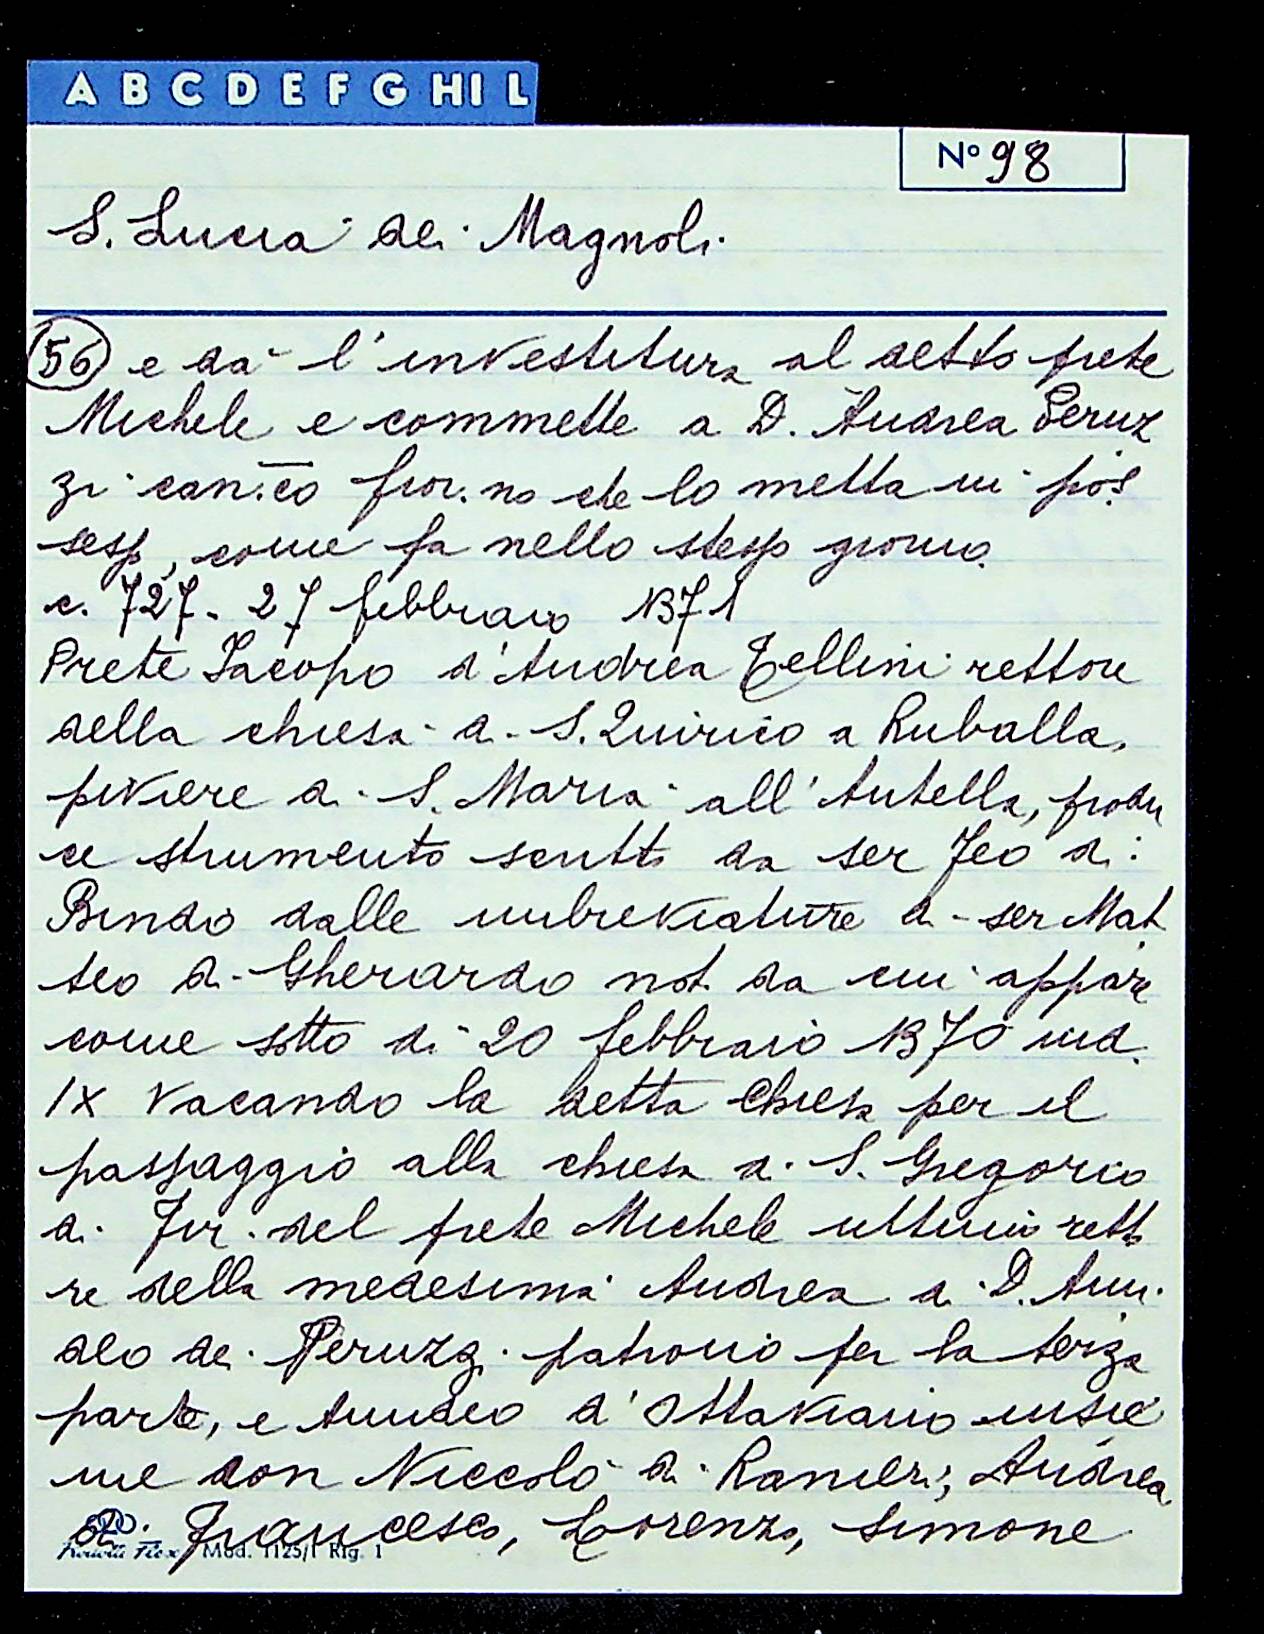 A B C D E F G H I L
Nº 98
S. Lucia dei Magnoli
56 e dà l'investitura al detto prete
Michele e commette a D. Andrea Peruz
zi can.co fior.no che lo metta in pos
sesso, come fa nello stesso giorno.
c. 727. 27 febbraio 1371
Prete Iacopo d'Andrea Tellini rettore
della chiesa di S. Quirico a Ruballa,
piviere di S. Maria all'Antella, produ
ce strumento scritto da ser Feo di
Bindo dalle imbreviature di ser Mat
teo di Gherardo not. da cui appare
come sotto dì 20 febbraio 1370 ind.
IX vacando la detta chiesa per il
passaggio alla chiesa di S. Gregorio
di Fir. del prete Michele ultimo retto
re della medesima Andrea di D.
deo dei Peruzzi patrono per la terza
parte, e Amideo d'Ottaviano insie
me con Niccolò di Ranieri, Andrea
di Francesco, Lorenzo, Simone
Flex Mod. 1125/1 Rig. 1